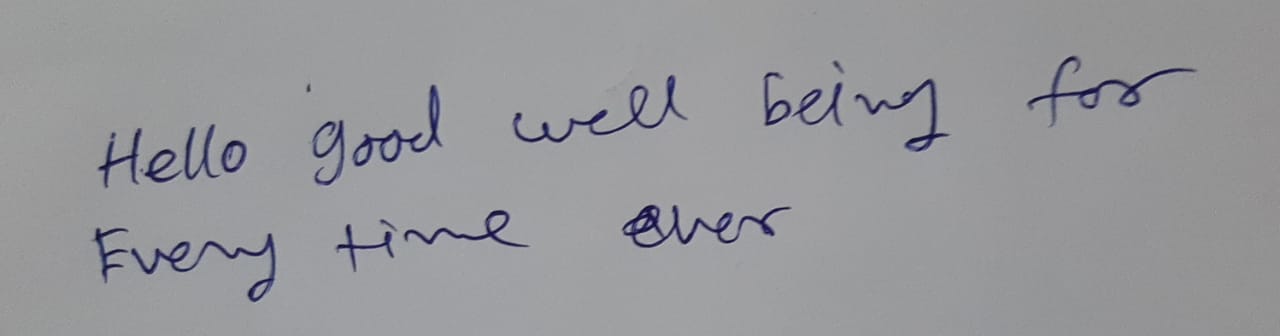 Hello good well being for
Every time ever